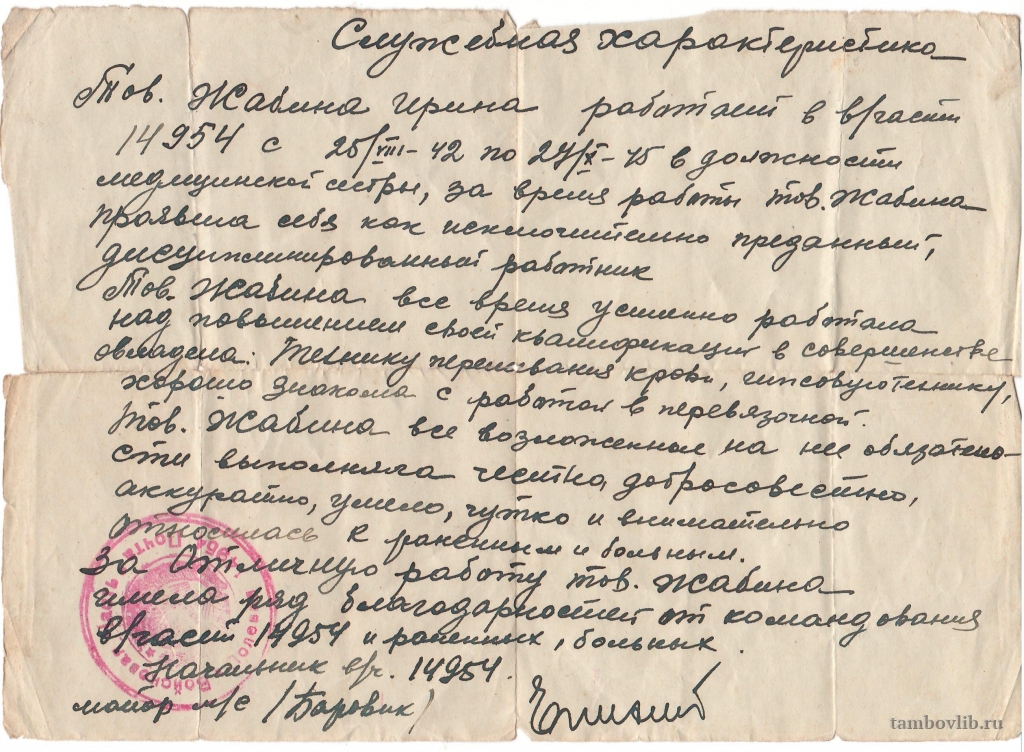 Служебная характеристика
Тов. Жабина Ирина работает в в/части
14954 с 25/VIII-42 по 27/X-45 в должности
медицинской сестры, за время работы тов. Жабина
проявила себя как исключительно преданный,
дисциплинированный работник
Тов. Жабина все время усиленно работала
над повышением своей квалификации в совершенстве
овладела: Технику переливания крови, гипсовую технику,
хорошо знакома с работой в перевязочной.
Тов. Жабина все возложенные на нее обязанно-
сти выполняла честно, добросовестно,
аккуратно, умело, чутко и внимательно
относилась к раненным и больным.
За Отличную работу тов. Жабина
имела ряд благодарностей от командования
в/части 14954 и раненных, больных.
Начальник в/ч. 14954.
майор м/с (Боровик)
tambovlib.ru